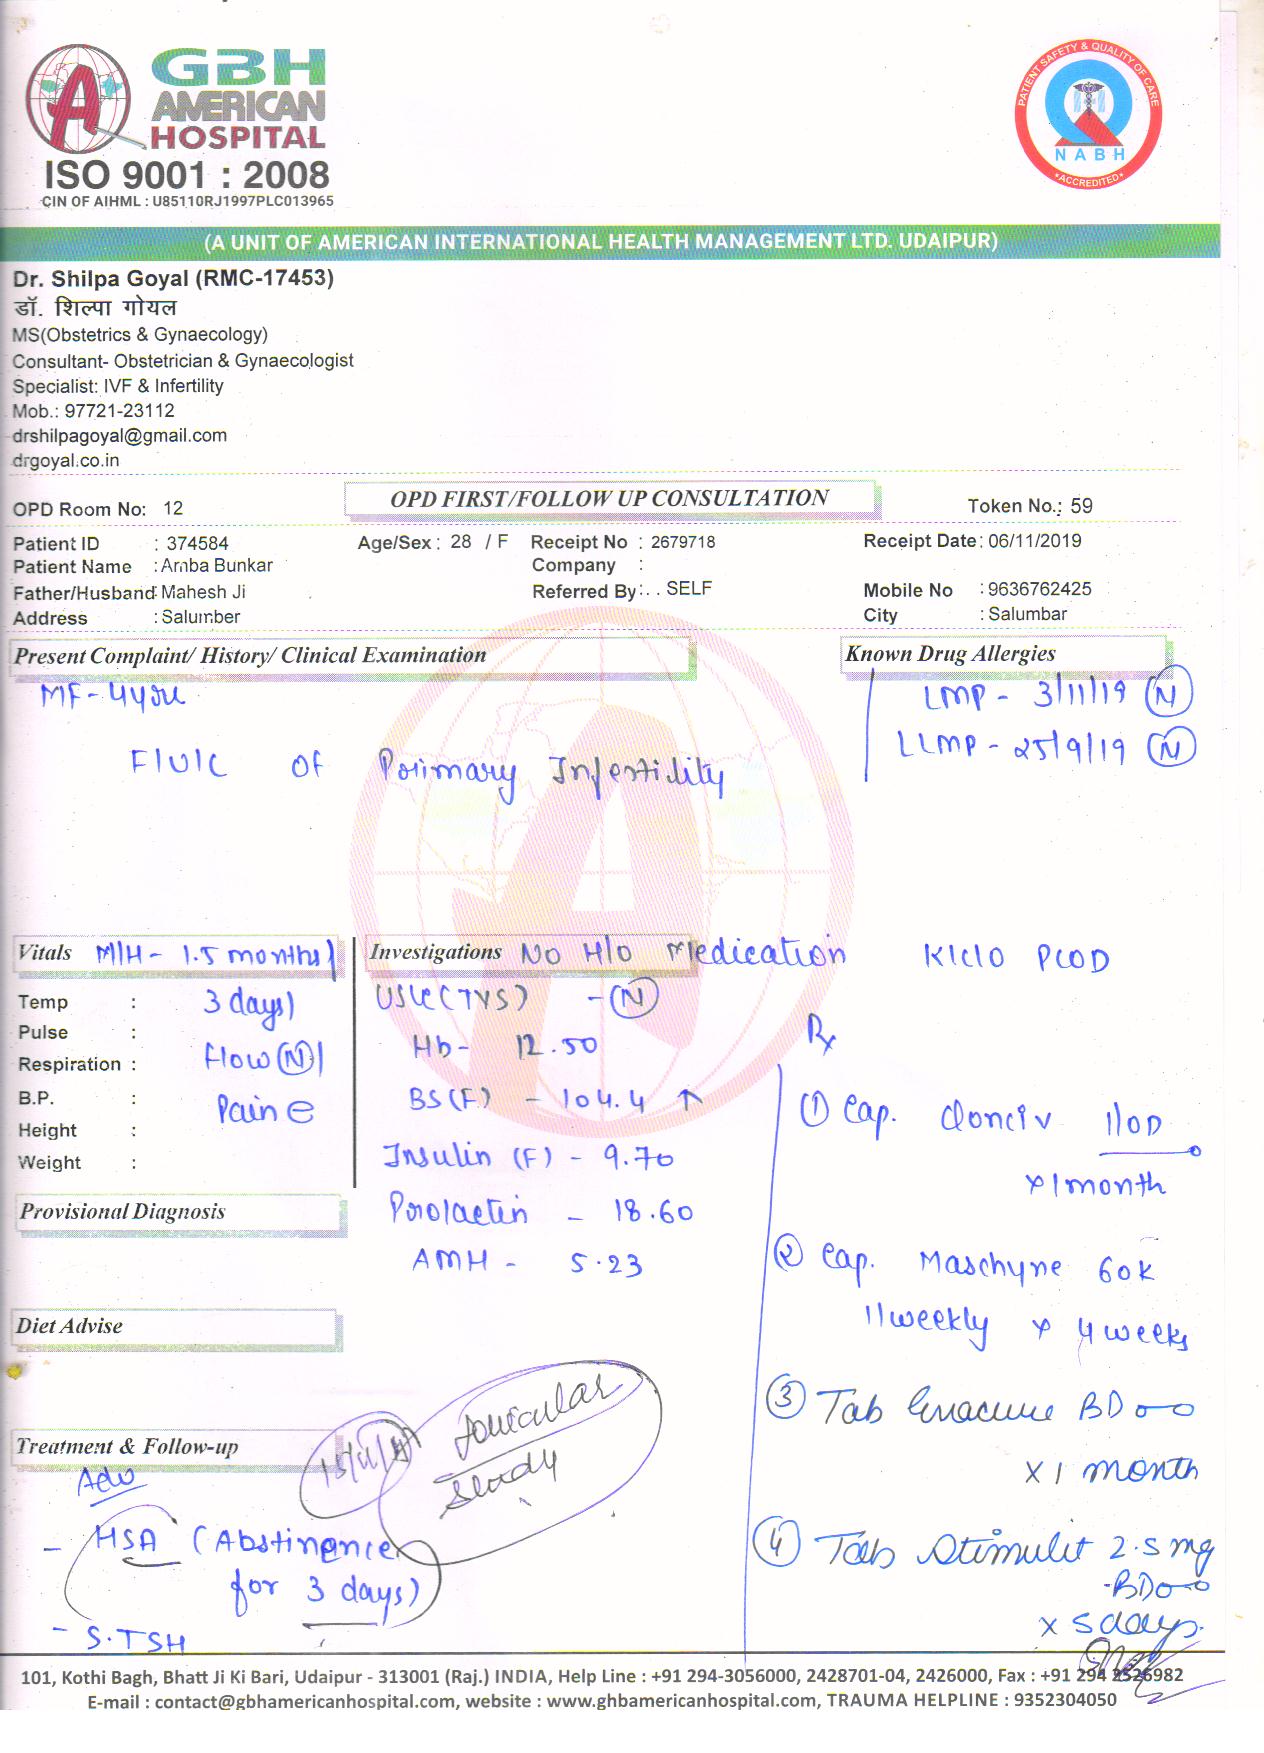 GBH
AMERICAN
HOSPITAL
ISO 9001 : 2008
CIN OF AIHML : U85110RJ1997PLC013965
PATIENT SAFETY & QUALITY OF CARE
NABH
ACCREDITED
(A UNIT OF AMERICAN INTERNATIONAL HEALTH MANAGEMENT LTD. UDAIPUR)
Dr. Shilpa Goyal (RMC-17453)
डॉ. शिल्पा गोयल
MS(Obstetrics & Gynaecology)
Consultant- Obstetrician & Gynaecologist
Specialist: IVF & Infertility
Mob.: 97721-23112
drshilpagoyal@gmail.com
drgoyal.co.in
OPD Room No: 12 OPD FIRST/FOLLOW UP CONSULTATION Token No.: 59
Patient ID : 374584 Age/Sex : 28 / F Receipt No : 2679718 Receipt Date: 06/11/2019
Patient Name : Amba Bunkar Company :
Father/Husband: Mahesh Ji Referred By: . . SELF Mobile No : 9636762425
Address : Salumber City : Salumbar
Present Complaint/ History/ Clinical Examination Known Drug Allergies
MF - 4 LMP - 3/11/19 (N)
LLMP - 25/9/19 (N)
F/U/C OF Primary Infertility
Vitals M/H - 1.5 months/ Investigations No H/o Medication K/C/O PCOD
Temp : 3 days) USG (TVS) - (N)
Pulse : Rx
Respiration : Flow (N) Hb - 12.50
B.P. : Pain BS (F) - 104.4 ↑ (1) Cap. 1/OD
Height :
Weight : Insulin (F) - 9.70 x 1 month
Provisional Diagnosis Prolactin - 18.60
AMH - 5.23 (2) Cap. 60K
Diet Advise 1/weekly x 4 weeks
(3) Tab BD
Treatment & Follow-up Follicular Study x 1 month
Adv
- HSA (Abstinence (4) Tab 2.5 mg
for 3 days) - BD
- S.TSH x 5 days.
101, Kothi Bagh, Bhatt Ji Ki Bari, Udaipur - 313001 (Raj.) INDIA, Help Line : +91 294-3056000, 2428701-04, 2426000, Fax : +91 294 2526982
E-mail : contact@gbhamericanhospital.com, website : www.ghbamericanhospital.com, TRAUMA HELPLINE : 9352304050